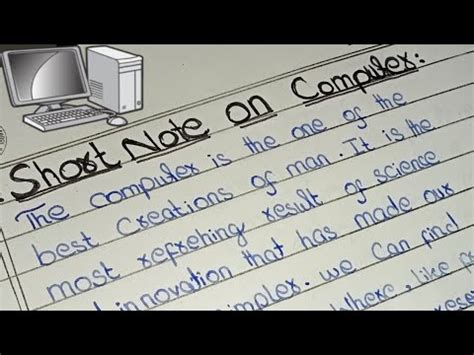 Short Note on Computer:
The computer is the one of the
best Creations of man. It is the
most refreshing result of science
innovation that has made our
simplex. we can find
where, like